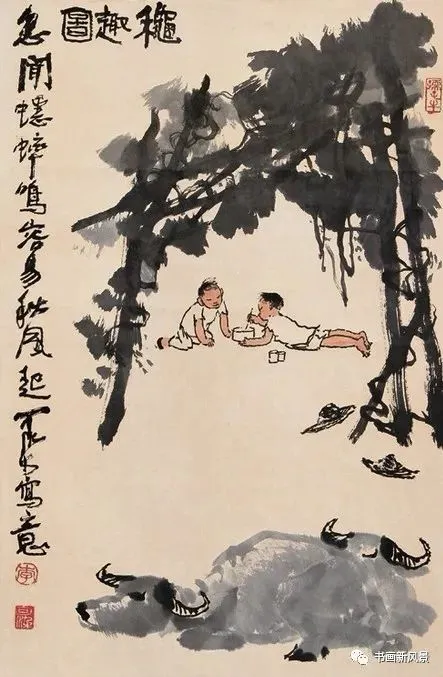 穐趣圖
忽聞蟋蟀鳴容易秋風起可染寫意
李
书画新风景